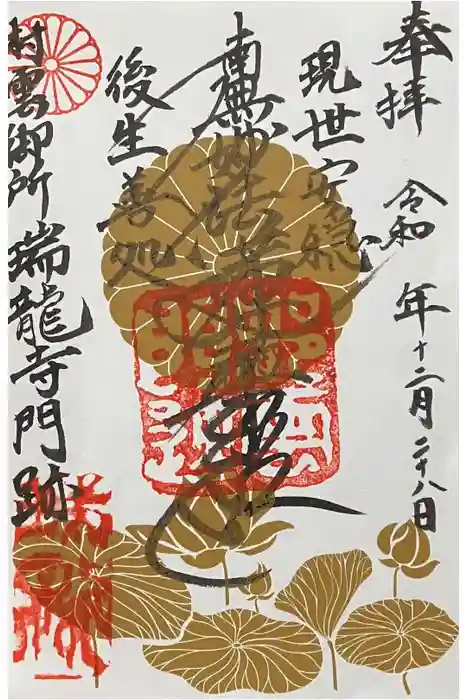 奉拝
令和 年十二月二十八日
現世安穏
南無妙法蓮華経
後生善処
村雲御所 瑞龍寺門跡